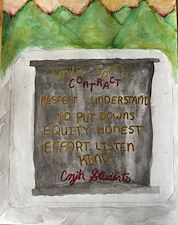 CONTRACT
RESPECT UNDERSTAND
NO PUT DOWNS
EQUITY HONEST
EFFORT LISTEN
KIND
Students